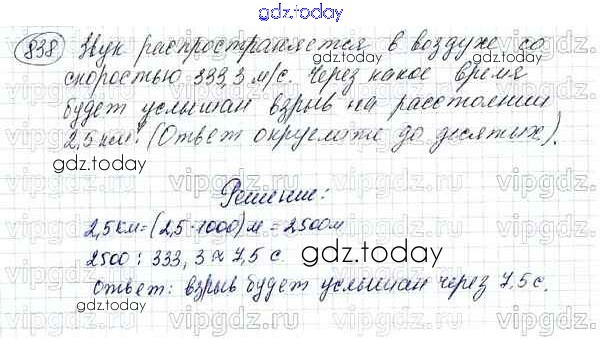 gdz.today
838 Звук распространяется в воздухе со
скоростью 333,3 м/с. Через какое время
будет услышан взрыв на расстоянии
2,5 км? (Ответ округлите до десятых).
gdz.today
gdz.today
vipgdz.ru vipgdz.ru vipgdz.ru
Решение:
2,5 км=(2,5·1000)м=2500м
2500 : 333,3 ≈ 7,5 с.
gdz.today
Ответ: взрыв будет услышан через 7,5 с.
gdz.today
vipgdz.ru vipgdz.ru vipgdz.ru